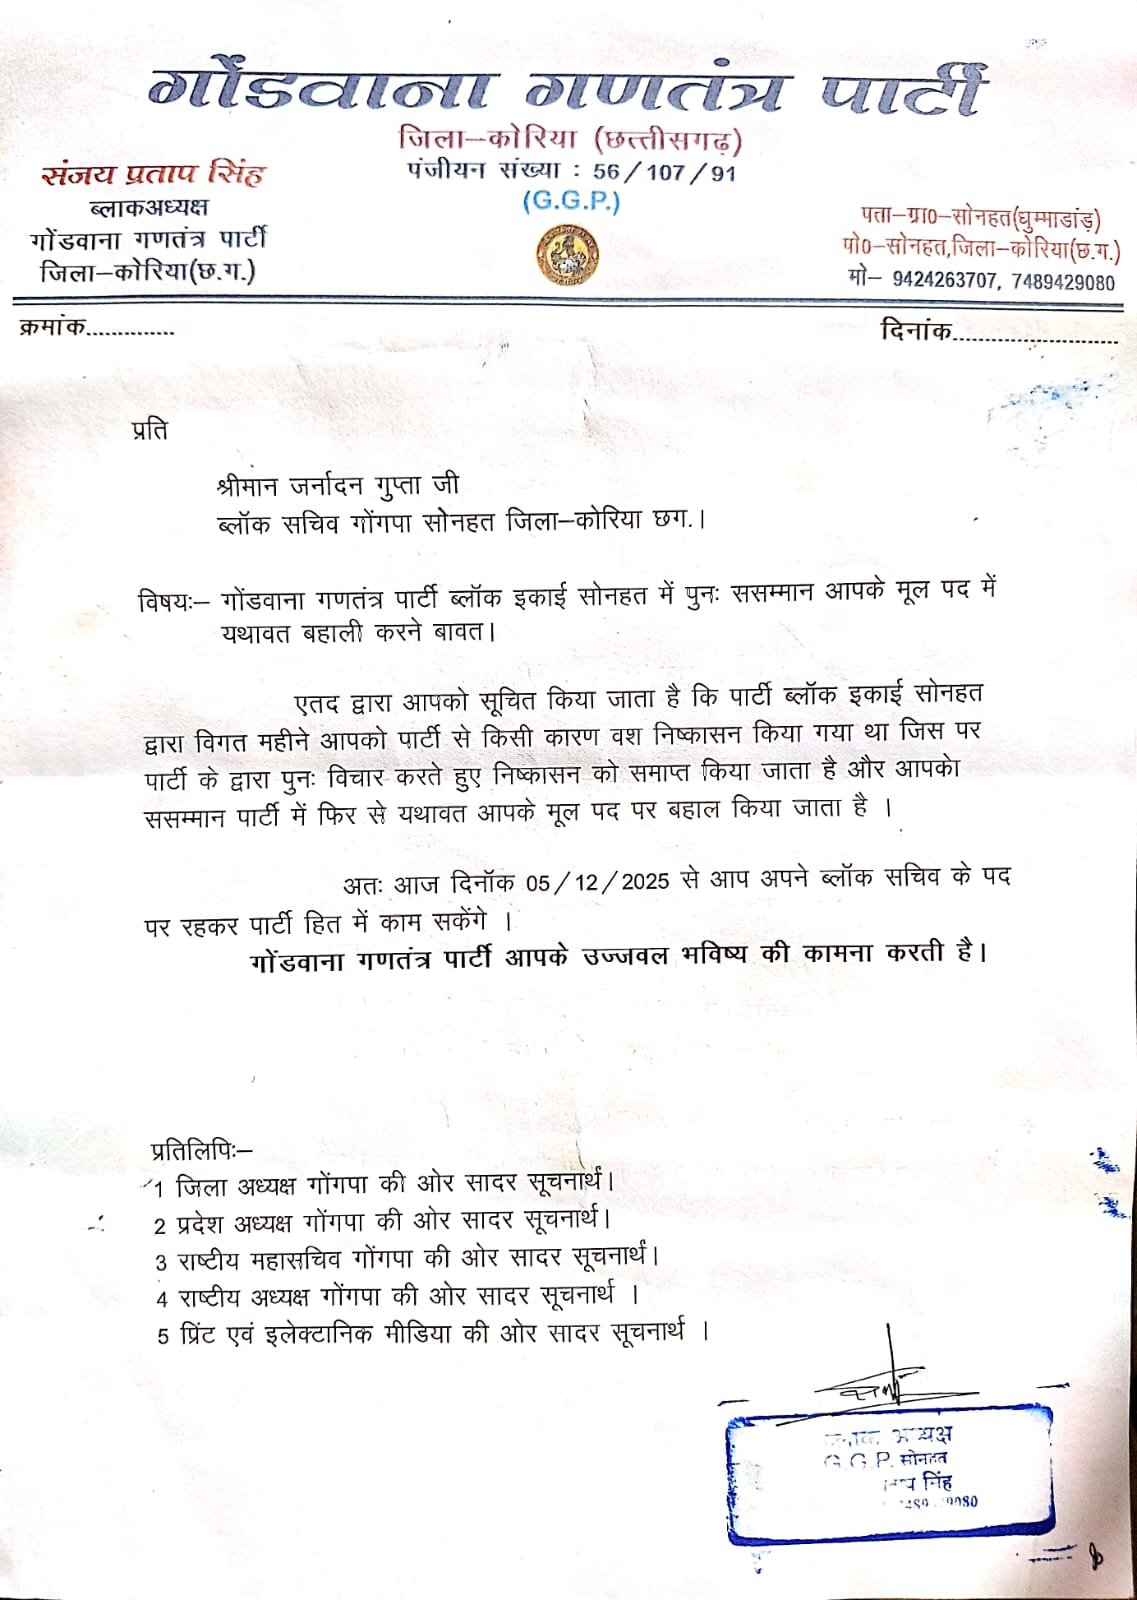 गोंडवाना गणतंत्र पार्टी
जिला–कोरिया (छत्तीसगढ़)
पंजीयन संख्या : 56/107/91
(G.G.P.)
संजय प्रताप सिंह
ब्लाकअध्यक्ष
गोंडवाना गणतंत्र पार्टी
जिला–कोरिया(छ.ग.)
पता–ग्रा0–सोनहत(घुम्माडांड़)
पो0–सोनहत,जिला–कोरिया(छ.ग.)
मो– 9424263707, 7489429080
क्रमांक..............
दिनांक...........................
प्रति
श्रीमान जर्नादन गुप्ता जी
ब्लॉक सचिव गोंगपा सोनहत जिला–कोरिया छग.।
विषयः– गोंडवाना गणतंत्र पार्टी ब्लॉक इकाई सोनहत में पुनः ससम्मान आपके मूल पद में
यथावत बहाली करने बावत।
एतद द्वारा आपको सूचित किया जाता है कि पार्टी ब्लॉक इकाई सोनहत
द्वारा विगत महीने आपको पार्टी से किसी कारण वश निष्कासन किया गया था जिस पर
पार्टी के द्वारा पुनः विचार करते हुए निष्कासन को समाप्त किया जाता है और आपको
ससम्मान पार्टी में फिर से यथावत आपके मूल पद पर बहाल किया जाता है ।
अतः आज दिनॉक 05/12/2025 से आप अपने ब्लॉक सचिव के पद
पर रहकर पार्टी हित में काम सकेंगे ।
गोंडवाना गणतंत्र पार्टी आपके उज्जवल भविष्य की कामना करती है।
प्रतिलिपिः–
1 जिला अध्यक्ष गोंगपा की ओर सादर सूचनार्थ।
2 प्रदेश अध्यक्ष गोंगपा की ओर सादर सूचनार्थ।
3 राष्टीय महासचिव गोंगपा की ओर सादर सूचनार्थ।
4 राष्टीय अध्यक्ष गोंगपा की ओर सादर सूचनार्थ ।
5 प्रिंट एवं इलेक्टानिक मीडिया की ओर सादर सूचनार्थ ।
अध्यक्ष
G.G.P. सोनहत
सिंह